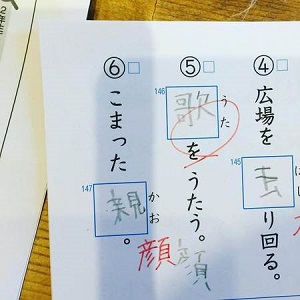 ④広場を
145
は
り回る。
⑤
146
歌
うた
をうたう。
⑥こまった
147
親
かお
。
顔
顔